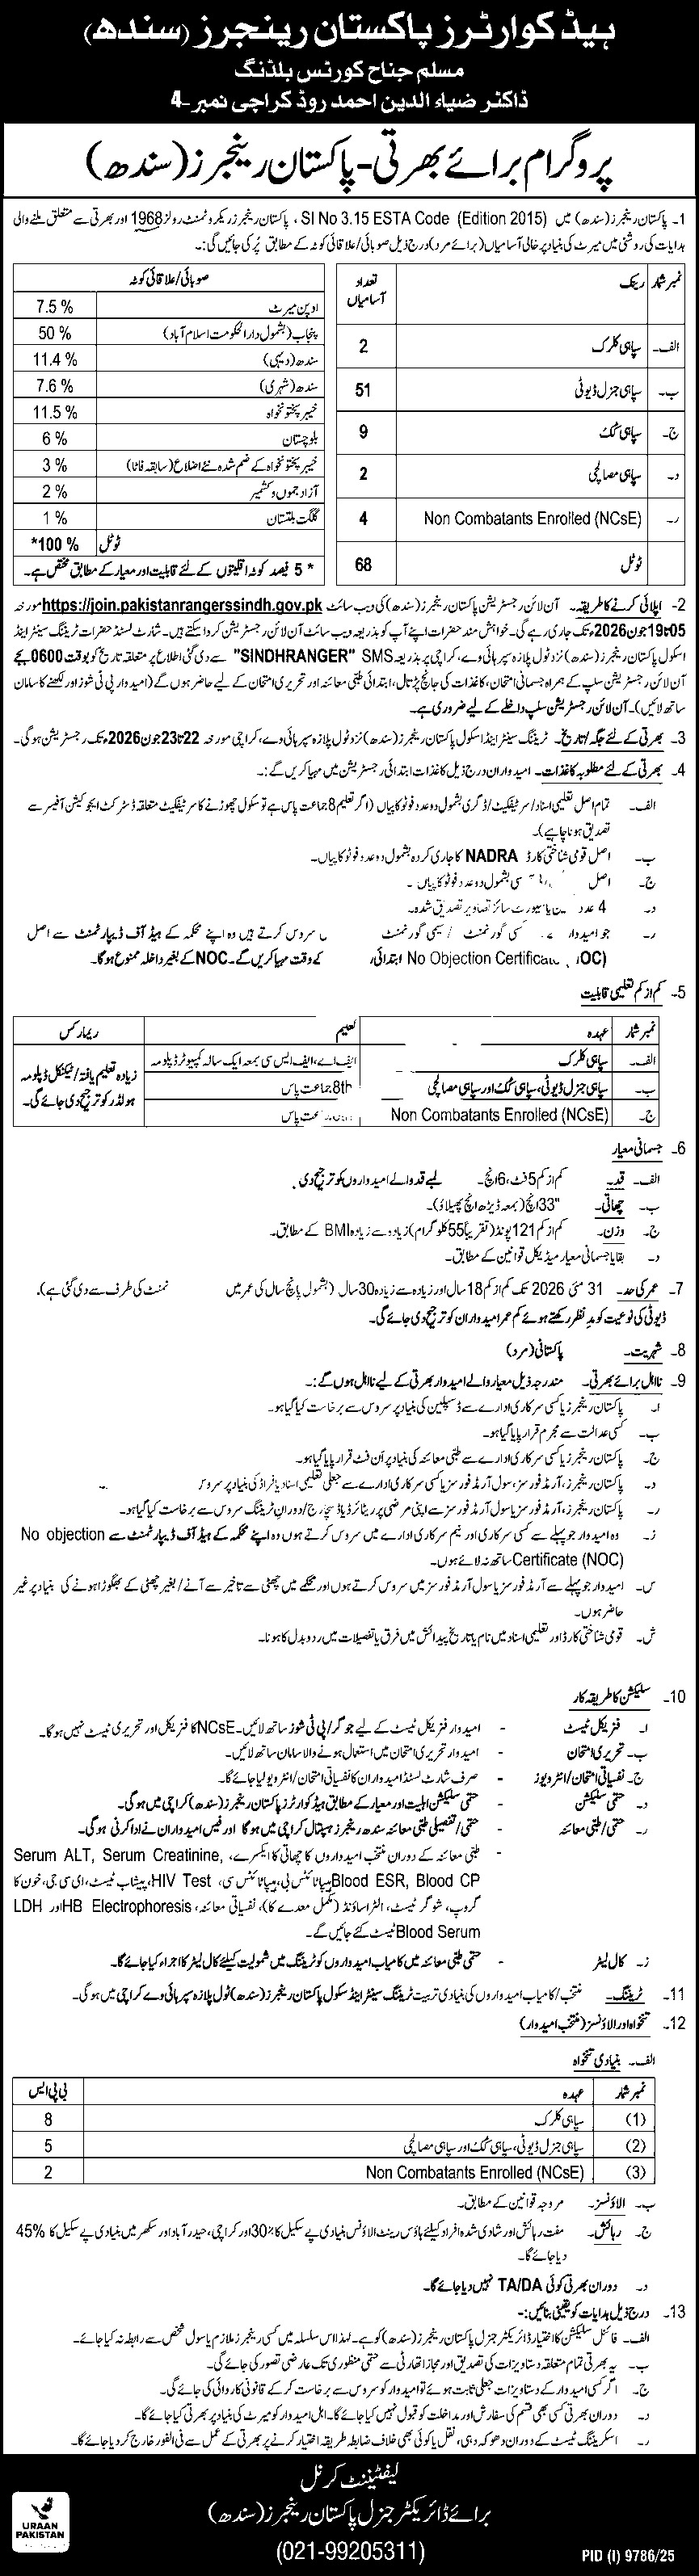 ہیڈ کوارٹرز پاکستان رینجرز (سندھ)
مسلم جناح کورٹس بلڈنگ
ڈاکٹر ضیاء الدین احمد روڈ کراچی نمبر-4
پروگرام برائے بھرتی - پاکستان رینجرز (سندھ)
1۔ پاکستان رینجرز (سندھ) میں SI No 3.15 ESTA Code (Edition 2015)، پاکستان رینجرز ریکروٹمنٹ رولز 1968 اور بھرتی سے متعلق ملنے والی
ہدایات کی روشنی میں میرٹ کی بنیاد پر خالی آسامیاں (برائے مرد) درج ذیل صوبائی/علاقائی کوٹہ کے مطابق پُر کی جائیں گی:۔
نمبر شمار رینک تعداد آسامیاں
الف۔ سپاہی کلرک 2
ب۔ سپاہی جنرل ڈیوٹی 51
ج۔ سپاہی کک 9
د۔ سپاہی مصالچی 2
ر۔ Non Combatants Enrolled (NCsE) 4
ٹوٹل 68
صوبائی/علاقائی کوٹہ
اوپن میرٹ 7.5 %
پنجاب (بشمول دارالحکومت اسلام آباد) 50 %
سندھ (دیہی) 11.4 %
سندھ (شہری) 7.6 %
خیبر پختونخواہ 11.5 %
بلوچستان 6 %
خیبر پختونخواہ کے ضم شدہ نئے اضلاع (سابقہ فاٹا) 3 %
آزاد جموں و کشمیر 2 %
گلگت بلتستان 1 %
ٹوٹل 100 %*
* 5 فیصد کوٹہ اقلیتوں کے لئے قابلیت اور معیار کے مطابق مختص ہے۔
2۔ اپلائی کرنے کا طریقہ۔ آن لائن رجسٹریشن پاکستان رینجرز (سندھ) کی ویب سائٹ https://join.pakistanrangerssindh.gov.pk مورخہ
05 تا 19 جون 2026ء تک جاری رہے گی۔ خواہش مند حضرات اپنے آپ کو بذریعہ ویب سائٹ آن لائن رجسٹریشن کروا سکتے ہیں۔ شارٹ لسٹڈ حضرات ٹریننگ سینٹر اینڈ
اسکول پاکستان رینجرز (سندھ) نزد ٹول پلازہ سپر ہائی وے، کراچی پر بذریعہ SMS "SINDHRANGER" سے دی گئی اطلاع پر متعلقہ تاریخ کو بوقت 0600 بجے
آن لائن رجسٹریشن سلپ کے ہمراہ جسمانی امتحان، کاغذات کی جانچ پڑتال، ابتدائی طبی معائنہ اور تحریری امتحان کے لیے حاضر ہوں گے (امیدوار پی ٹی شوز اور لکھنے کا سامان
ساتھ لائیں)۔ آن لائن رجسٹریشن سلپ داخلے کے لیے ضروری ہے۔
3۔ بھرتی کے لئے جگہ/تاریخ۔ ٹریننگ سینٹر اینڈ اسکول پاکستان رینجرز (سندھ) نزد ٹول پلازہ سپر ہائی وے، کراچی مورخہ 22 تا 23 جون 2026ء تک رجسٹریشن ہوگی۔
4۔ بھرتی کے لئے مطلوبہ کاغذات۔ امیدواران درج ذیل کاغذات ابتدائی رجسٹریشن میں مہیا کریں گے:۔
الف۔ تمام اصل تعلیمی اسناد/سرٹیفکیٹ/ڈگری بشمول دو عدد فوٹو کاپیاں (اگر تعلیم 8 جماعت پاس ہے تو سکول چھوڑنے کا سرٹیفکیٹ متعلقہ ڈسٹرکٹ ایجوکیشن آفیسر سے
تصدیق ہونا چاہیے)۔
ب۔ اصل قومی شناختی کارڈ NADRA کا جاری کردہ بشمول دو عدد فوٹو کاپیاں۔
ج۔ اصل سی بشمول دو عدد فوٹو کاپیاں۔
د۔ 4 عدد پاسپورٹ سائز تصاویر تصدیق شدہ۔
ر۔ جو امیدوار کسی گورنمنٹ / سیمی گورنمنٹ سروس کرتے ہیں وہ اپنے محکمہ کے ہیڈ آف ڈیپارٹمنٹ سے اصل
No Objection Certificate ابتدائی کے وقت مہیا کریں گے۔ NOC کے بغیر داخلہ ممنوع ہوگا۔
5۔ کم از کم تعلیمی قابلیت
نمبر شمار عہدہ تعلیم ریمارکس
الف۔ سپاہی کلرک ایف اے، ایف ایس سی بمعہ ایک سالہ کمپیوٹر ڈپلومہ
ب۔ سپاہی جنرل ڈیوٹی، سپاہی کک اور سپاہی مصالچی 8th جماعت پاس
ج۔ Non Combatants Enrolled (NCsE) جماعت پاس
زیادہ تعلیم یافتہ/ٹیکنکل ڈپلومہ ہولڈر کو ترجیح دی جائے گی۔
6۔ جسمانی معیار
الف۔ قد۔ کم از کم 5 فٹ، 6 انچ۔ لمبے قد والے امیدواروں کو ترجیح دی
ب۔ چھاتی۔ 33" انچ (بمعہ ڈیڑھ انچ پھیلاؤ)۔
ج۔ وزن۔ کم از کم 121 پونڈ (تقریباً 55 کلوگرام) زیادہ سے زیادہ BMI کے مطابق۔
د۔ بقایا جسمانی معیار میڈیکل قوانین کے مطابق۔
7۔ عمر کی حد۔ 31 مئی 2026 تک کم از کم 18 سال اور زیادہ سے زیادہ 30 سال (بشمول پانچ سال کی عمر میں نمنٹ کی طرف سے دی گئی ہے)۔
ڈیوٹی کی نوعیت کو مدِ نظر رکھتے ہوئے کم عمر امیدواران کو ترجیح دی جائے گی۔
8۔ شہریت۔ پاکستانی (مرد)
9۔ نااہل برائے بھرتی۔ مندرجہ ذیل معیار والے امیدوار بھرتی کے لیے نااہل ہوں گے:۔
ا۔ پاکستان رینجرز یا کسی سرکاری ادارے سے ڈسپلین کی بنیاد پر سروس سے برخاست کیا گیا ہو۔
ب۔ کسی عدالت سے مجرم قرار پایا گیا ہو۔
ج۔ پاکستان رینجرز یا کسی سرکاری ادارے سے طبی معائنہ کی بنیاد پر اَن فٹ قرار پایا گیا ہو۔
د۔ پاکستان رینجرز، آرمڈ فورسز، سول آرمڈ فورسز یا کسی سرکاری ادارے سے جعلی تعلیمی اسناد یا فراڈ کی بنیاد پر سروس
ر۔ پاکستان رینجرز، آرمڈ فورسز یا سول آرمڈ فورسز سے اپنی مرضی پر ریٹائرڈ یا ڈسچارج/دوران ٹریننگ سروس سے برخاست کیا گیا ہو۔
ز۔ وہ امیدوار جو پہلے سے کسی سرکاری اور نیم سرکاری ادارے میں سروس کرتے ہوں وہ اپنے محکمہ کے ہیڈ آف ڈیپارٹمنٹ سے No objection
Certificate (NOC) ساتھ نہ لائے ہوں۔
س۔ امیدوار جو پہلے سے آرمڈ فورسز یا سول آرمڈ فورسز میں سروس کرتے ہوں اور محکمے میں چھٹی سے تاخیر سے آنے/بغیر چھٹی کے بھگوڑا ہونے کی بنیاد پر غیر
حاضر ہوں۔
ش۔ قومی شناختی کارڈ اور تعلیمی اسناد میں نام یا تاریخ پیدائش میں فرق یا تفصیلات میں ردوبدل کا ہونا۔
10۔ سلیکشن کا طریقہ کار
ا۔ فزیکل ٹیسٹ - امیدوار فزیکل ٹیسٹ کے لیے جوگر/پی ٹی شوز ساتھ لائیں۔ NCsE کا فزیکل اور تحریری ٹیسٹ نہیں ہوگا۔
ب۔ تحریری امتحان - امیدوار تحریری امتحان میں استعمال ہونے والا سامان ساتھ لائیں۔
ج۔ نفسیاتی امتحان/انٹرویوز - صرف شارٹ لسٹڈ امیدواران کا نفسیاتی امتحان/انٹرویو لیا جائے گا۔
د۔ حتمی سلیکشن - حتمی سلیکشن اہلیت اور معیار کے مطابق ہیڈ کوارٹرز پاکستان رینجرز (سندھ) کراچی میں ہوگی۔
ر۔ حتمی/طبی معائنہ - حتمی/تفصیلی طبی معائنہ سندھ رینجرز ہسپتال کراچی میں ہوگا اور فیس امیدواران نے ادا کرنی ہوگی۔
- طبی معائنہ کے دوران منتخب امیدواروں کا چھاتی کا ایکسرے، Serum ALT, Serum Creatinine,
Blood ESR, Blood CP ہیپاٹائٹس بی، ہیپاٹائٹس سی، HIV Test، پیشاب ٹیسٹ، ای سی جی، خون کا
گروپ، شوگر ٹیسٹ، الٹراساؤنڈ (مکمل معدے کا)، نفسیاتی معائنہ، HB Electrophoresis اور LDH
Blood Serum ٹیسٹ کئے جائیں گے۔
ز۔ کال لیٹر - حتمی طبی معائنہ میں کامیاب امیدواروں کو ٹریننگ میں شمولیت کیلئے کال لیٹر کا اجراء کیا جائے گا۔
11۔ ٹریننگ۔ منتخب/کامیاب امیدواروں کی بنیادی تربیت ٹریننگ سینٹر اینڈ سکول پاکستان رینجرز (سندھ) ٹول پلازہ سپر ہائی وے کراچی میں ہوگی۔
12۔ تنخواہ اور الاؤنسز (منتخب امیدوار)
الف۔ بنیادی تنخواہ
نمبر شمار عہدہ بی پی ایس
(1) سپاہی کلرک 8
(2) سپاہی جنرل ڈیوٹی، سپاہی کک اور سپاہی مصالچی 5
(3) Non Combatants Enrolled (NCsE) 2
ب۔ الاؤنسز۔ مروجہ قوانین کے مطابق۔
ج۔ رہائش۔ مفت رہائش اور شادی شدہ افراد کیلئے ہاؤس رینٹ الاؤنس بنیادی پے سکیل کا 30% اور کراچی، حیدرآباد اور سکھر میں بنیادی پے سکیل کا 45%
دیا جائے گا۔
د۔ دوران بھرتی کوئی TA/DA نہیں دیا جائے گا۔
13۔ درج ذیل ہدایات کو یقینی بنائیں:۔
الف۔ فائنل سلیکشن کا اختیار ڈائریکٹر جنرل پاکستان رینجرز (سندھ) کو ہے۔ لہٰذا اس سلسلہ میں کسی رینجرز ملازم یا سول شخص سے رابطہ نہ کیا جائے۔
ب۔ یہ بھرتی تمام متعلقہ دستاویزات کی تصدیق اور مجاز اتھارٹی سے حتمی منظوری تک عارضی تصور کی جائے گی۔
ج۔ اگر کسی امیدوار کے دستاویزات جعلی ثابت ہوئے تو امیدوار کو سروس سے برخاست کر کے قانونی کاروائی کی جائے گی۔
د۔ دوران بھرتی کسی بھی قسم کی سفارش اور مداخلت کو قبول نہیں کیا جائے گا۔ اہل امیدوار کو میرٹ کی بنیاد پر بھرتی کیا جائے گا۔
ر۔ اسکریننگ ٹیسٹ کے دوران دھوکہ دہی، نقل یا کوئی بھی خلاف ضابطہ طریقہ اختیار کرنے پر بھرتی کے عمل سے فی الفور خارج کر دیا جائے گا۔
لیفٹیننٹ کرنل
برائے ڈائریکٹر جنرل پاکستان رینجرز (سندھ)
(021-99205311)
URAAN
PAKISTAN
PID (I) 9786/25